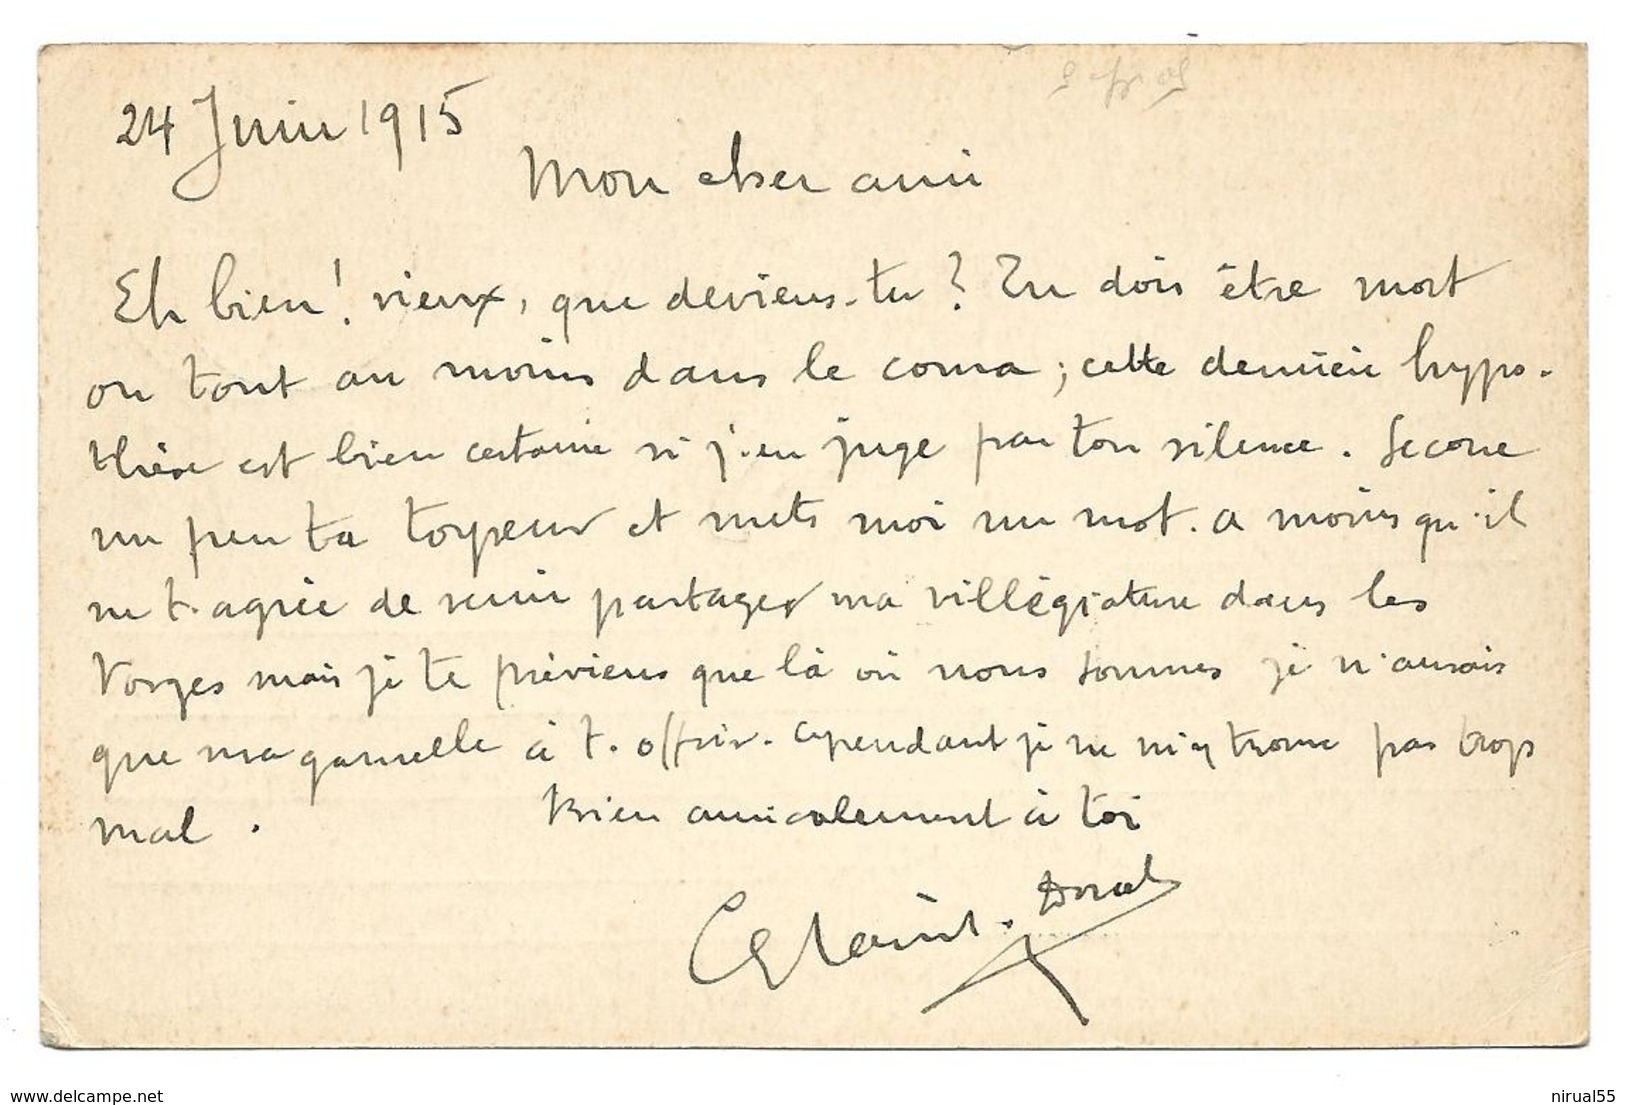 24 Juin 1915
Mon cher ami
Eh bien ! vieux, que deviens-tu ? Tu dois être mort
ou tout au moins dans le coma ; cette dernière hypo-
thèse est bien certaine si j'en juge par ton silence. Secoue
un peu ta torpeur et mets moi un mot. a moins qu'il
ne t'agrée de venir partager ma villégiature dans les
Vosges mais je te préviens que là où nous sommes je n'aurais
que ma gamelle à t'offrir. Cependant je ne m'y trouve pas trop
mal.
Bien amicalement à toi
www.delcampe.net
nirual55